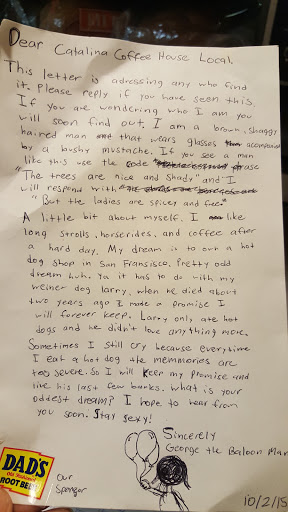 Dear Catalina Coffee House Local,
This letter is adressing any who find
it. Please reply if you have seen this.
If you are wondering who I am you
will soon find out. I am a brown, shaggy
haired man that wears glasses accompanied
by a bushy mustache. If you see a man
like this use the code phrase
"The trees are nice and shady" and I
will respond with
"But the ladies are spicey and free"
A little bit about myself. I like
long strolls, horserides, and coffee after
a hard day. My dream is to own a hot
dog shop in San Fransisco. Pretty odd
dream huh. Ya it has to do with my
weiner dog Larry, when he died about
two years ago I made a promise I
will forever keep. Larry only ate hot
dogs and he didn't love anything more.
Sometimes I still cry because everytime
I eat a hot dog the memmories are
too severe. So I will keep my promise and
live his last few barks. What is your
oddest dream? I hope to hear from
you soon. Stay sexy!
Sincerely
George the Baloon Man
DAD'S
Old Fashioned
ROOT BEER
Our
Sponser
10/2/15